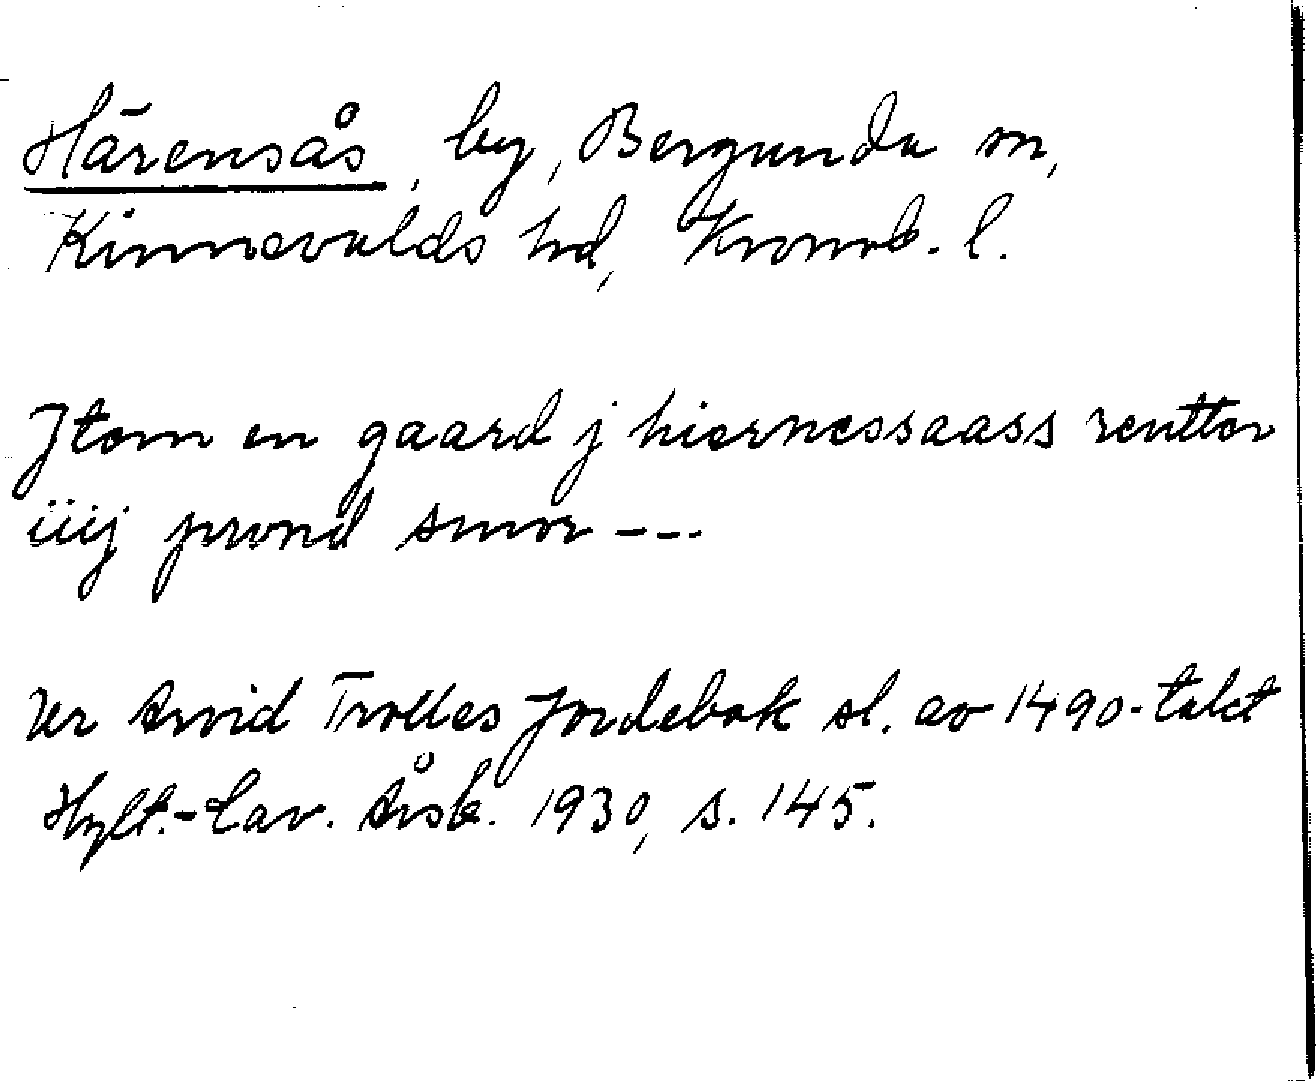 Härensås, by, Bergunda sn,
Kinnevalds hd, Kronob. l.
Jtem en gaard j hiernessaass rentter
iiij pwnd smør ---
Ur Arvid Trolles Jordebok sl. av 1490-talet
Hylt.-Cav. Årsb. 1930, s. 145.